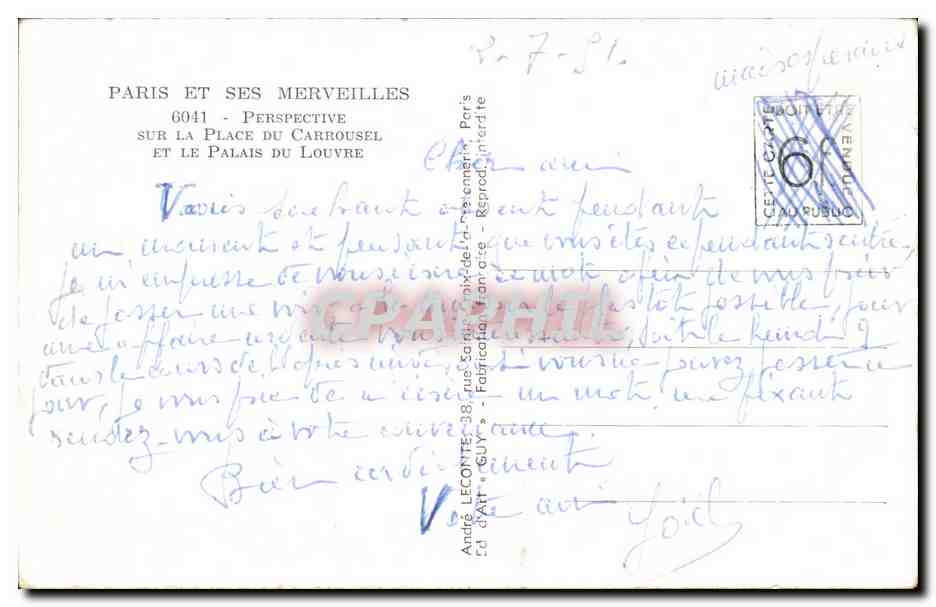 2-7-51.
PARIS ET SES MERVEILLES
6041 - PERSPECTIVE
SUR LA PLACE DU CARROUSEL
ET LE PALAIS DU LOUVRE
CETTE CARTE DOIT ETRE VENDUE 6f AU PUBLIC
Cher ami
Vous sachant absent pendant
un moment et pensant que vous êtes cependant rentré,
je m'empresse de vous écrire ce mot afin de vous prier
de passer me voir le plus tôt possible, pour
une affaire urgente soit le lundi 9
dans le cours de l'après midi, et si vous ne pouvez passer ce
jour, je vous prie de m'écrire un mot me fixant
rendez-vous à votre convenance.
Bien cordialement
Votre ami
CPAPHIL
André LECONTE, 38, rue Sainte-Croix-de-la-Bretonnerie, Paris
Ed d'Art « GUY » - Fabrication Française - Reprod. interdite